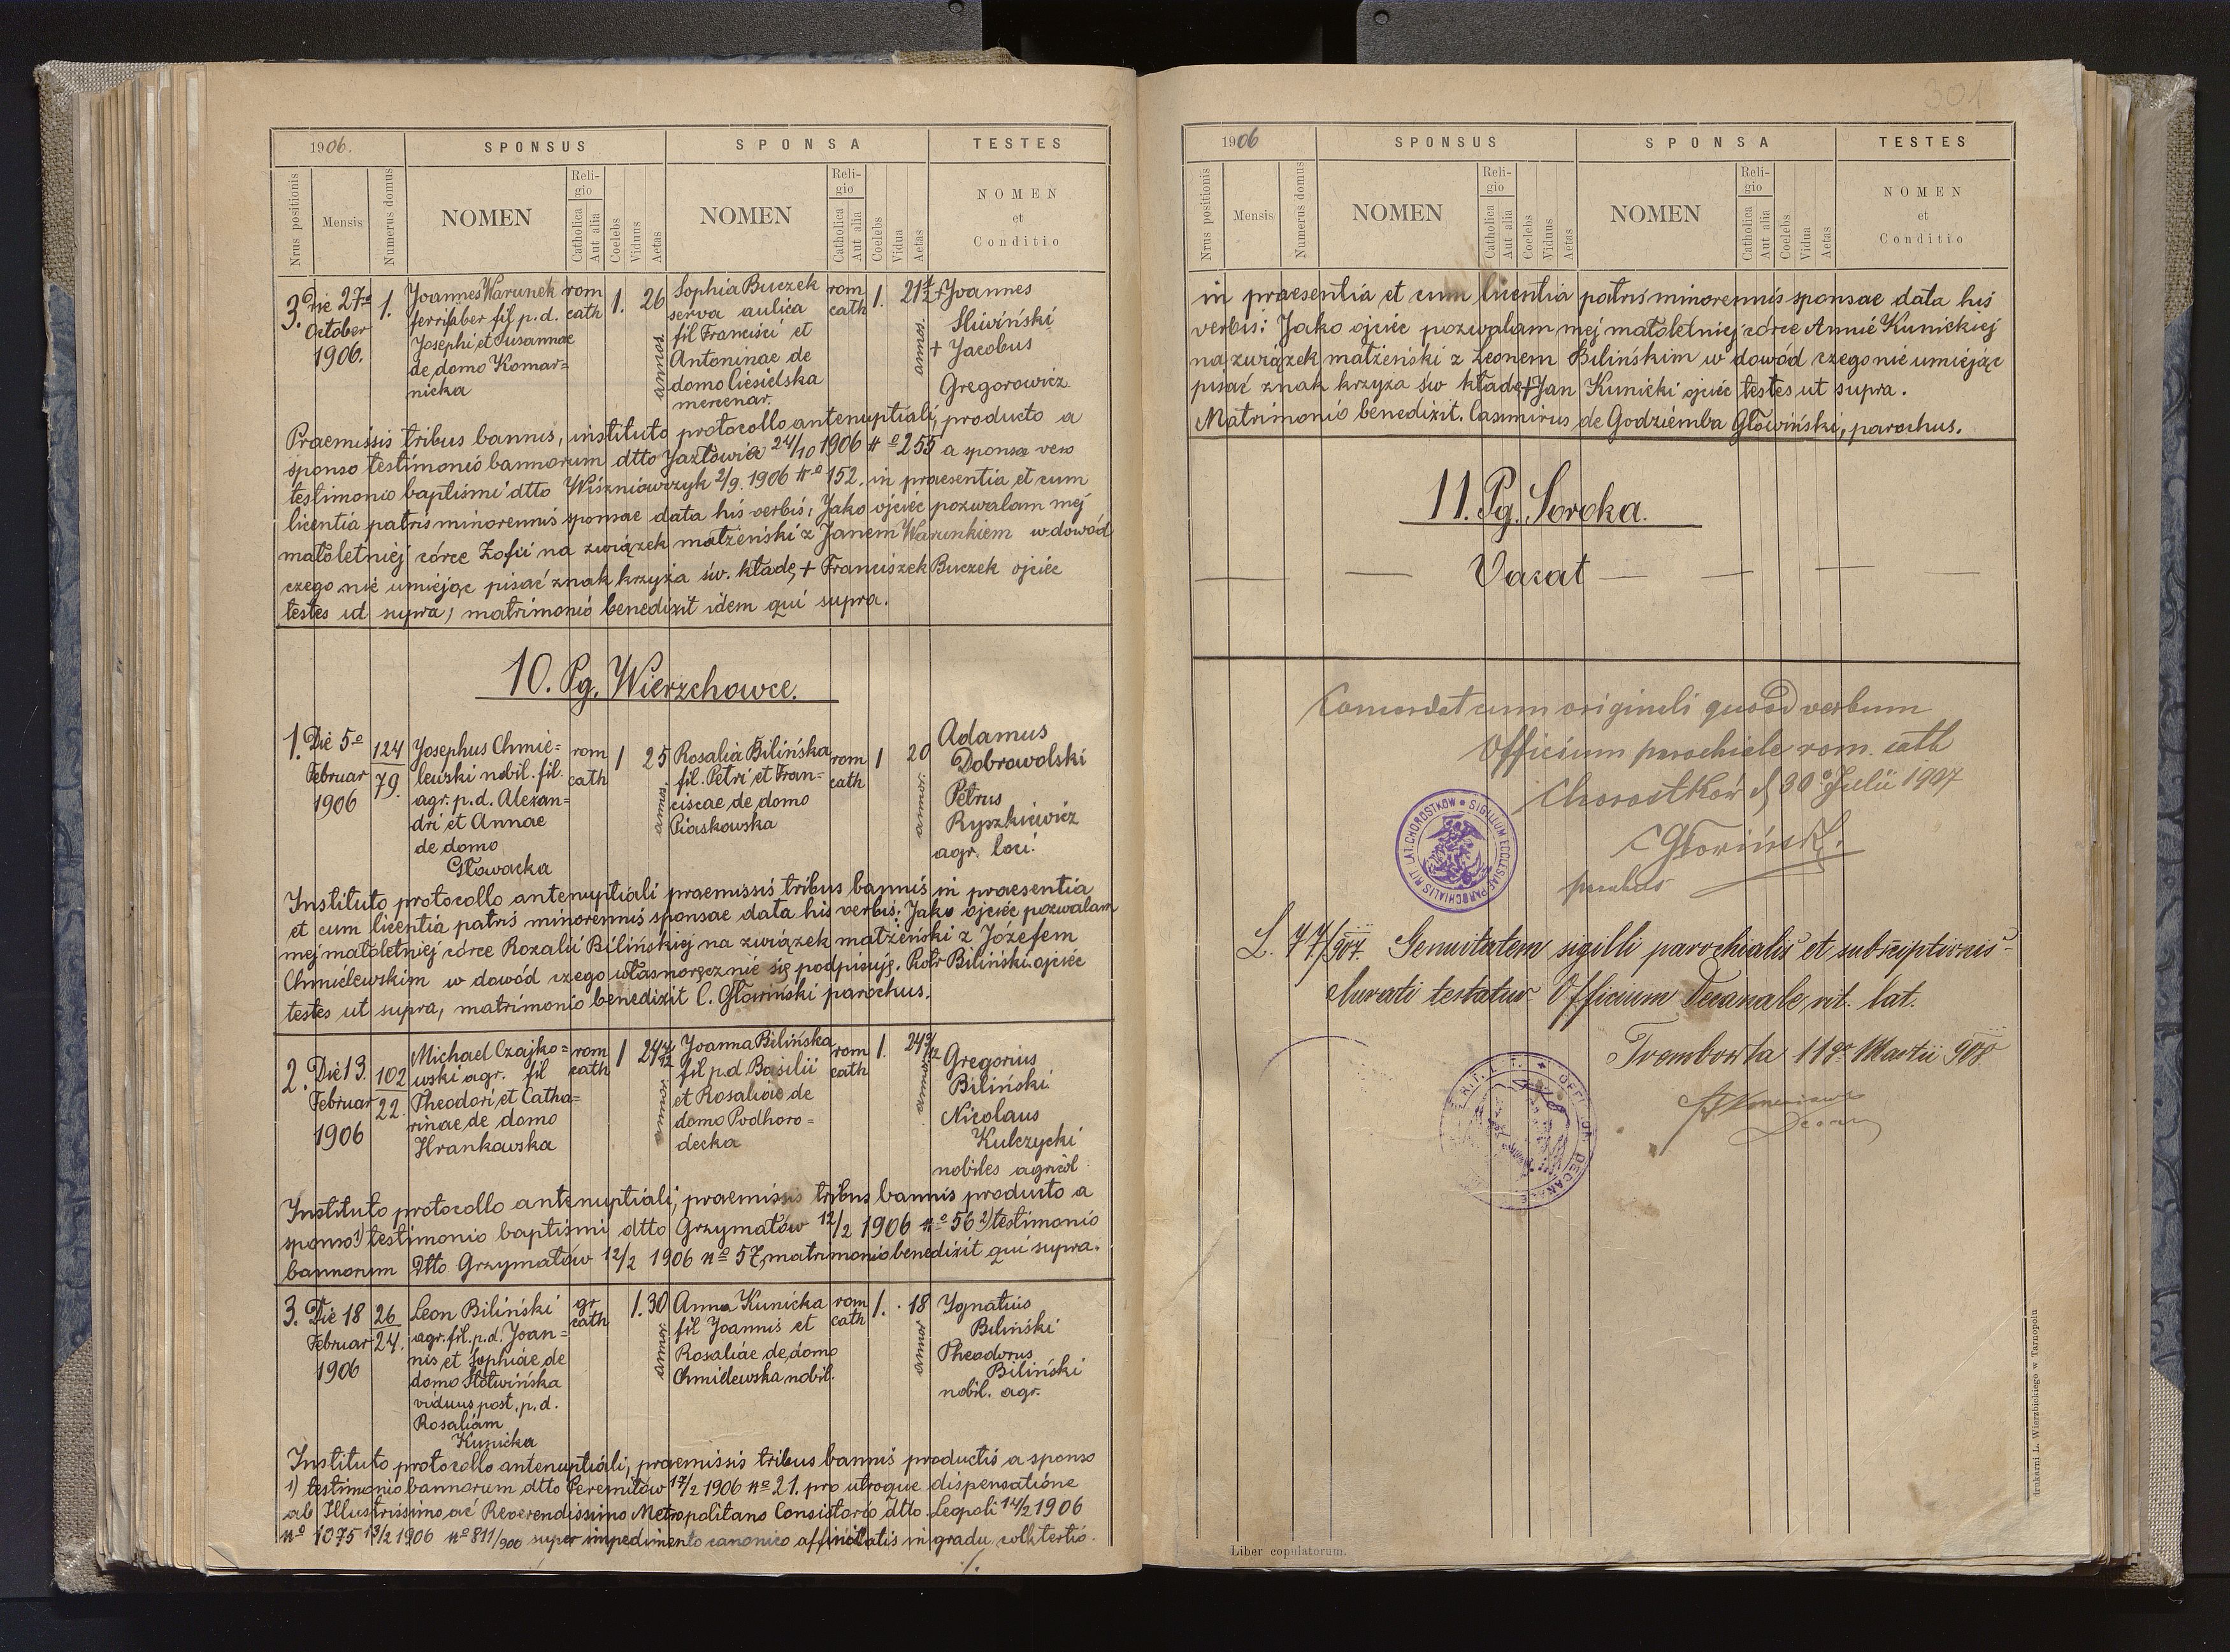 1906.
SPONSUS
SPONSA
TESTES
Nrus positionis
Mensis
Numerus domus
NOMEN
Religio
Catholica
Aut alia
Coelebs
Viduus
Aetas
NOMEN
Religio
Catholica
Aut alia
Coelebs
Vidua
Aetas
NOMEN
et
Conditio
3. Die 27º
October
1906.
1.
Joannes Warunek
ferrifaber fil p. d.
Josephi et Susannae
de domo Komar=
nicka
rom
cath
1.
26
annor.
Sophia Buczek
serva aulica
fil Francisci et
Antoninae de
domo Ciesielska
mercenar.
rom
cath
1.
21
annor.
+Joannes
Sliwiński
+ Jacobus
Gregorowicz
Praemissis tribus bannis, instituto protocollo antenuptiali, producto a
sponso testimonio bannorum dtto Jazłowia 24/10 1906 Nº 255 a sponsa vero
testimonio baptismi dtto Wiszniowczyk 2/9. 1906 Nº 152. in praesentia et cum
licentia patris minorennis sponsae data his verbis: Jako ojciec pozwalam mej
małoletniej córce Zofii na związek małżeński z Janem Warunkiem w dowód
czego nie umiejąc pisać znak krzyża św. kładę + Franciszek Buczek ojciec
testes ut supra, matrimonio benedixit idem qui supra.
10. Pg. Wierzchowce.
1. Die 5º
Februar
1906
124
79.
Josephus Chmie=
lewski nobil. fil.
agr. p. d. Alexan=
dri et Annae
de domo
Głowacka
rom
cath
1
25
annor.
Rosalia Bilińska
fil. Petri et Fran=
ciscae de domo
Piaskowska
rom
cath
1
20
annor.
Adamus
Dobrowolski
Petrus
Ryszkiewicz
agr. loci.
Instituto protocollo antenuptiali praemissis tribus bannis in praesentia
et cum licentia patris minorennis sponsae data his verbis: Jako ojciec pozwalam
mej małoletniej córce Rozalii Bilińskiej na związek małżeński z Józefem
Chmielewskim w dowód czego własnoręcznie się podpisuję. Piotr Biliński ojciec
testes ut supra, matrimonio benedixit C. Głowiński parochus.
2. Die 13.
Februar
1906
102
22.
Michael Czajko=
wski agr. fil
Theodori et Catha=
rinae de domo
Hrankowska
rom
cath
1
24
annor.
Joanna Bilińska
fil p.d. Basilii
et Rosaliae de
domo Podhoro=
decka
rom
cath
1.
24
annor.
Gregorius
Biliński
Nicolaus
Kulczycki
nobiles agricol
Instituto protocollo antenuptiali, praemissis tribus bannis producto a
sponso 1) testimonio baptismi dtto Grzymałów 12/2 1906 Nº 56 2) testimonio
bannorum Dtto Grzymałów 12/2 1906 Nº 57, matrimonio benedixit qui supra.
3. Die 18
Februar
1906
26
24.
Leon Biliński
agr. fil. p. d. Joan=
nis et Sophiae de
domo Słotwińska
viduus post. p. d.
Rosaliam
Kunicka
gr
cath
1.
30
annor.
Anna Kunicka
fil Joannis et
Rosaliae de domo
Chmielewska nobil.
rom
cath
1.
18
annor
Ignatius
Biliński
Theodorus
Biliński
nobil. agr.
Instituto protocollo antenuptiali, praemissis tribus bannis productis a sponso
1) testimonio bannorum dtto Peremilów 17/2 1906 Nº 21. pro utroque dispensatione
ab Illustrissimo ac Reverendissimo Metropolitano Consistorio dtto Leopoli 14/2 1906
Nº 1075 13/2 1906 Nº 811/900 super impedimento canonico affinitatis in gradu coll. tertio.
./.
301
1906
SPONSUS
SPONSA
TESTES
Nrus positionis
Mensis
Numerus domus
NOMEN
Religio
Catholica
Aut alia
Coelebs
Viduus
Aetas
NOMEN
Religio
Catholica
Aut alia
Coelebs
Vidua
Aetas
NOMEN
et
Conditio
in praesentia et cum licentia patris minorennis sponsae data his
verbis: Jako ojciec pozwalam mej małoletniej córce Annie Kunickiej
na związek małżeński z Leonem Bilińskim w dowód czego nie umiejąc
pisać znak krzyża św kładę + Jan Kunicki ojciec testes ut supra.
Matrimonio benedixit. Casimirus de Godziemba Głowiński, parochus.
11. Pg. Soroka.
Vacat
Concordat cum originali quoad verbum
Officium parochiale rom. cath
Chorostków d 30º Julii 1907
CGłowiński.
parochus
SIGILLUM ECCLESIAE PAROCHIALIS RIT. LAT. CHOROSTKOW
L. 77/907. Genuitatem sigilli parochialis et subscriptionis
Curati testatur Officium Decanale rit. lat.
Trembowla 11go Martii 908
DECANALE
Liber copulatorum.
drukarni L. Wierzbickiego w Tarnopolu